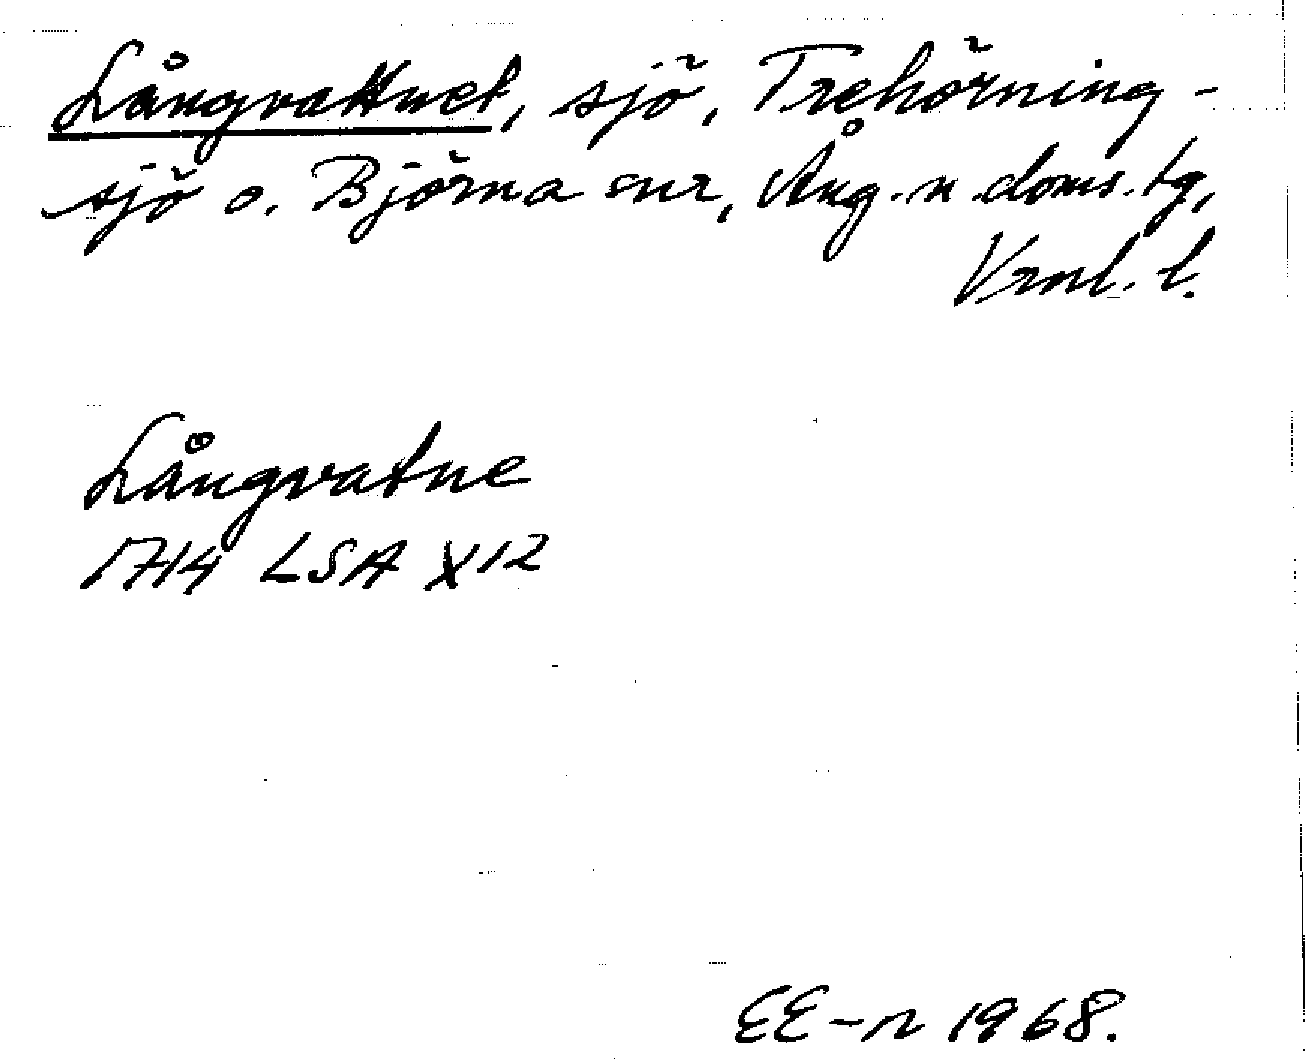 Långvattnet, sjö, Trehörning-
sjö o. Björna snr, Ång. n. doms. tg,
Vrnl. l.
Långvatne
1714 LSA X12
EE-n 1968.